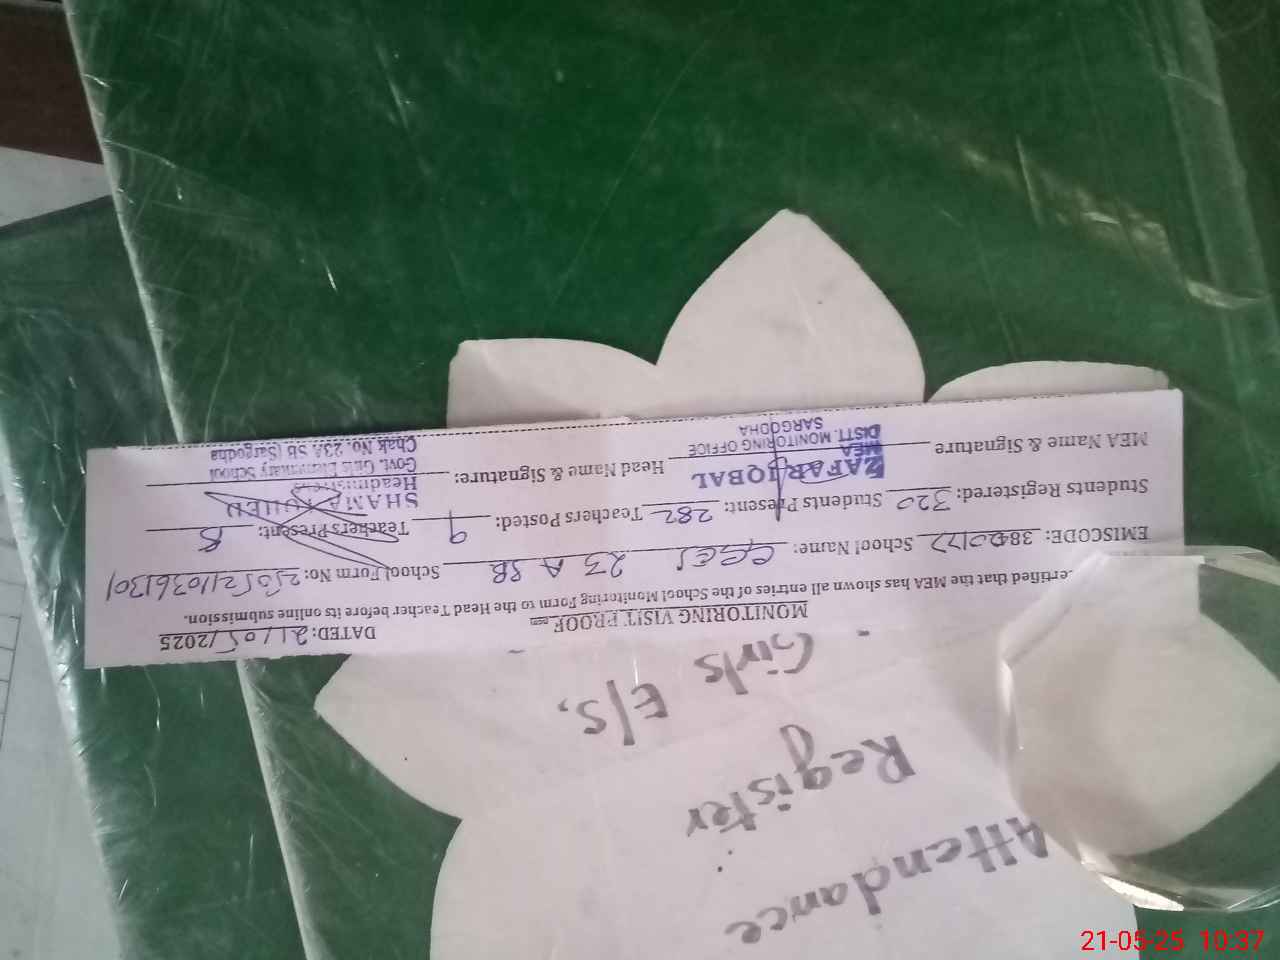 Attendance
Register
Girls E/S,
MONITORING VISIT PROOF
DATED: 21/05/2025
ertified that the MEA has shown all entries of the School Monitoring Form to the Head Teacher before its online submission.
EMISCODE: School Name: GGES 23 A SB School Form No:
Students Registered: 320 Students Present: 282 Teachers Posted: 9 Teachers Present: 8
MEA Name & Signature Head Name & Signature:
ZAFAR IQBAL
MEA
DISTT. MONITORING OFFICE
SARGODHA
Headmistress
Govt. Girls Elementary School
Chak No. 23A SB (Sargodha
21-05-25 10:37